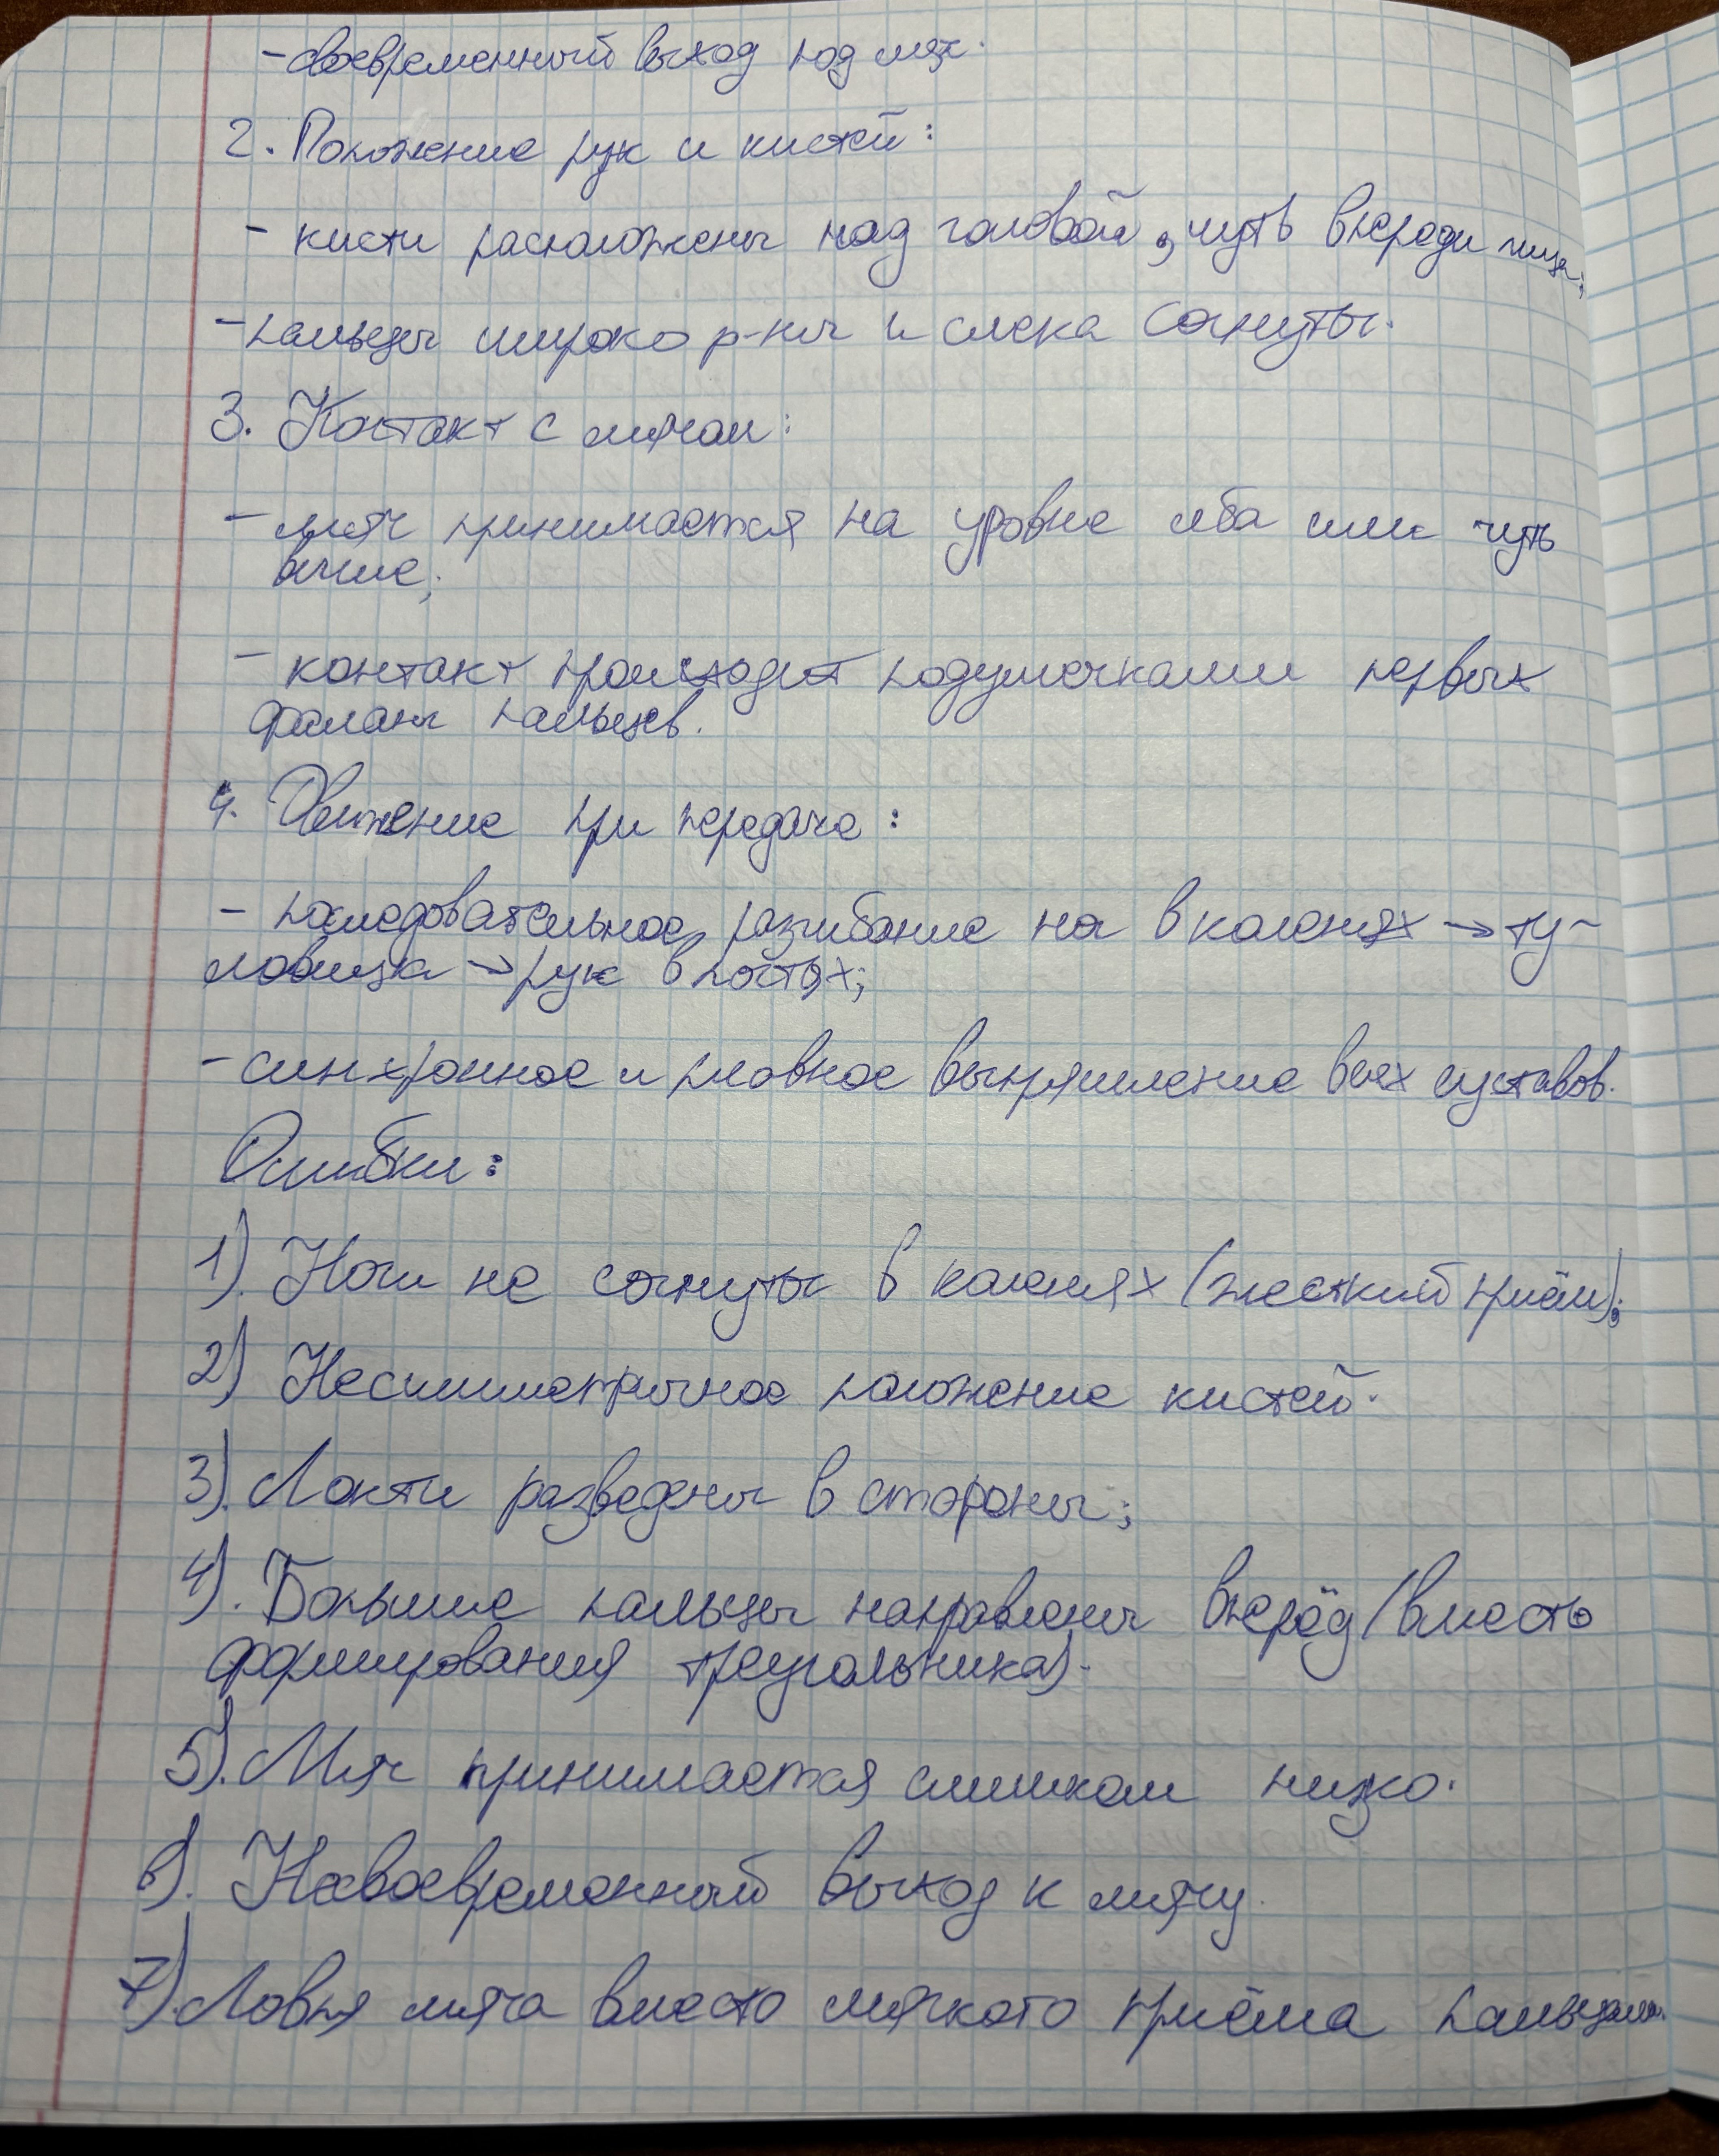 - своевременный выход под мяч.
2. Положение рук и кистей:
- кисти расположены над головой, чуть впереди лица;
- пальцы широко р-ны и слека согнуты.
3. Контакт с мячом:
- мяч принимается на уровне лба или чуть
выше;
- контакт происходит подушечками первых
фаланг пальцев.
4. Движение при передаче:
- последовательное разгибание ног в коленях → ту-
ловища → рук в локтях;
- синхронное и плавное выпрямление всех суставов.
Ошибки:
1). Ноги не согнуты в коленях (жесткий приём);
2) Несимметричное положение кистей.
3). Локти разведены в стороны;
4). Большие пальцы направлены вперёд (вместо
формирования треугольника).
5). Мяч принимается слишком низко.
6). Несвоевременный выход к мячу.
7). Ловля мяча вместо мягкого приёма пальцами.